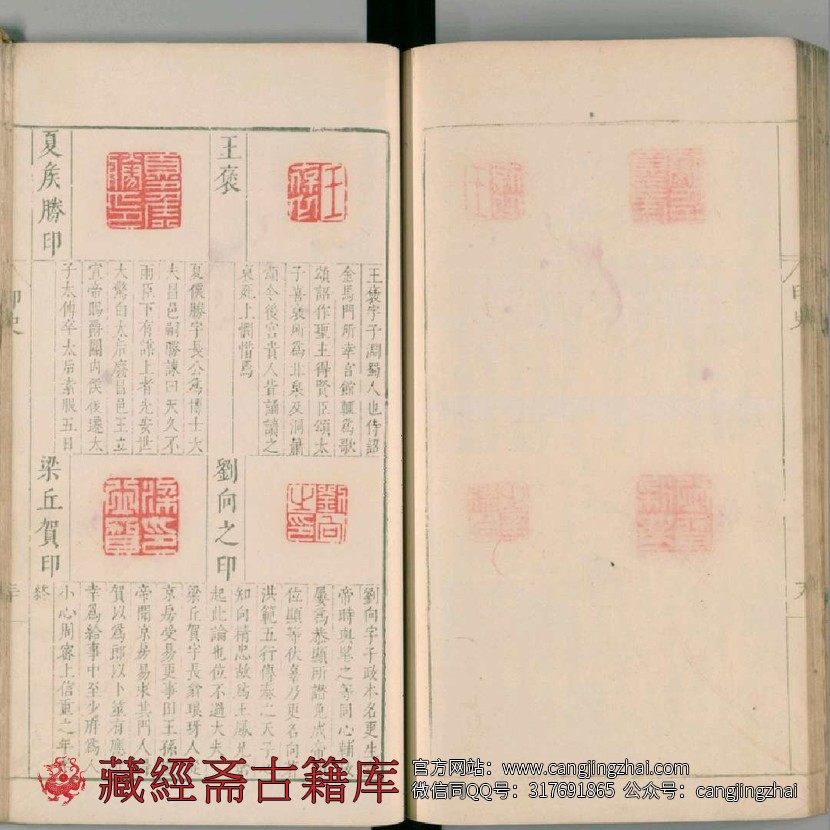 王褒
王褒字子淵蜀人也侍詔
金馬門所幸宮館輒為歌
頌詔作聖主得賢臣頌太
子喜褒所為甘泉及洞簫
頌令後宮貴人皆誦讀之
褒死上憫惜焉
夏矦勝印
夏侯勝字長公為博士大
夫昌邑嗣勝諫曰天久不
雨臣下有謀上者光安世
大驚白太后廢昌邑王立
宣帝賜爵關內侯後遷太
子太傅卒太后素服五日
劉向之印
劉向字子政本名更生
帝時與望之等同心輔
屢為恭顯所譖免成
位顯等伏辜乃更名向
洪範五行傳奏之天子
知向精忠故為王鳳兄
起此論也位不過大夫
梁丘賀印
梁丘賀字長翁琅琊人
京房受易更事田王孫
帝聞京房易求其門人
賀以為郎以卜筮有應
幸為給事中至少府為人
小心周密上信重之年
終
印史
印史
藏經斋古籍库
官方网站：www.cangjingzhai.com
微信同QQ号：317691865 公众号：cangjingzhai